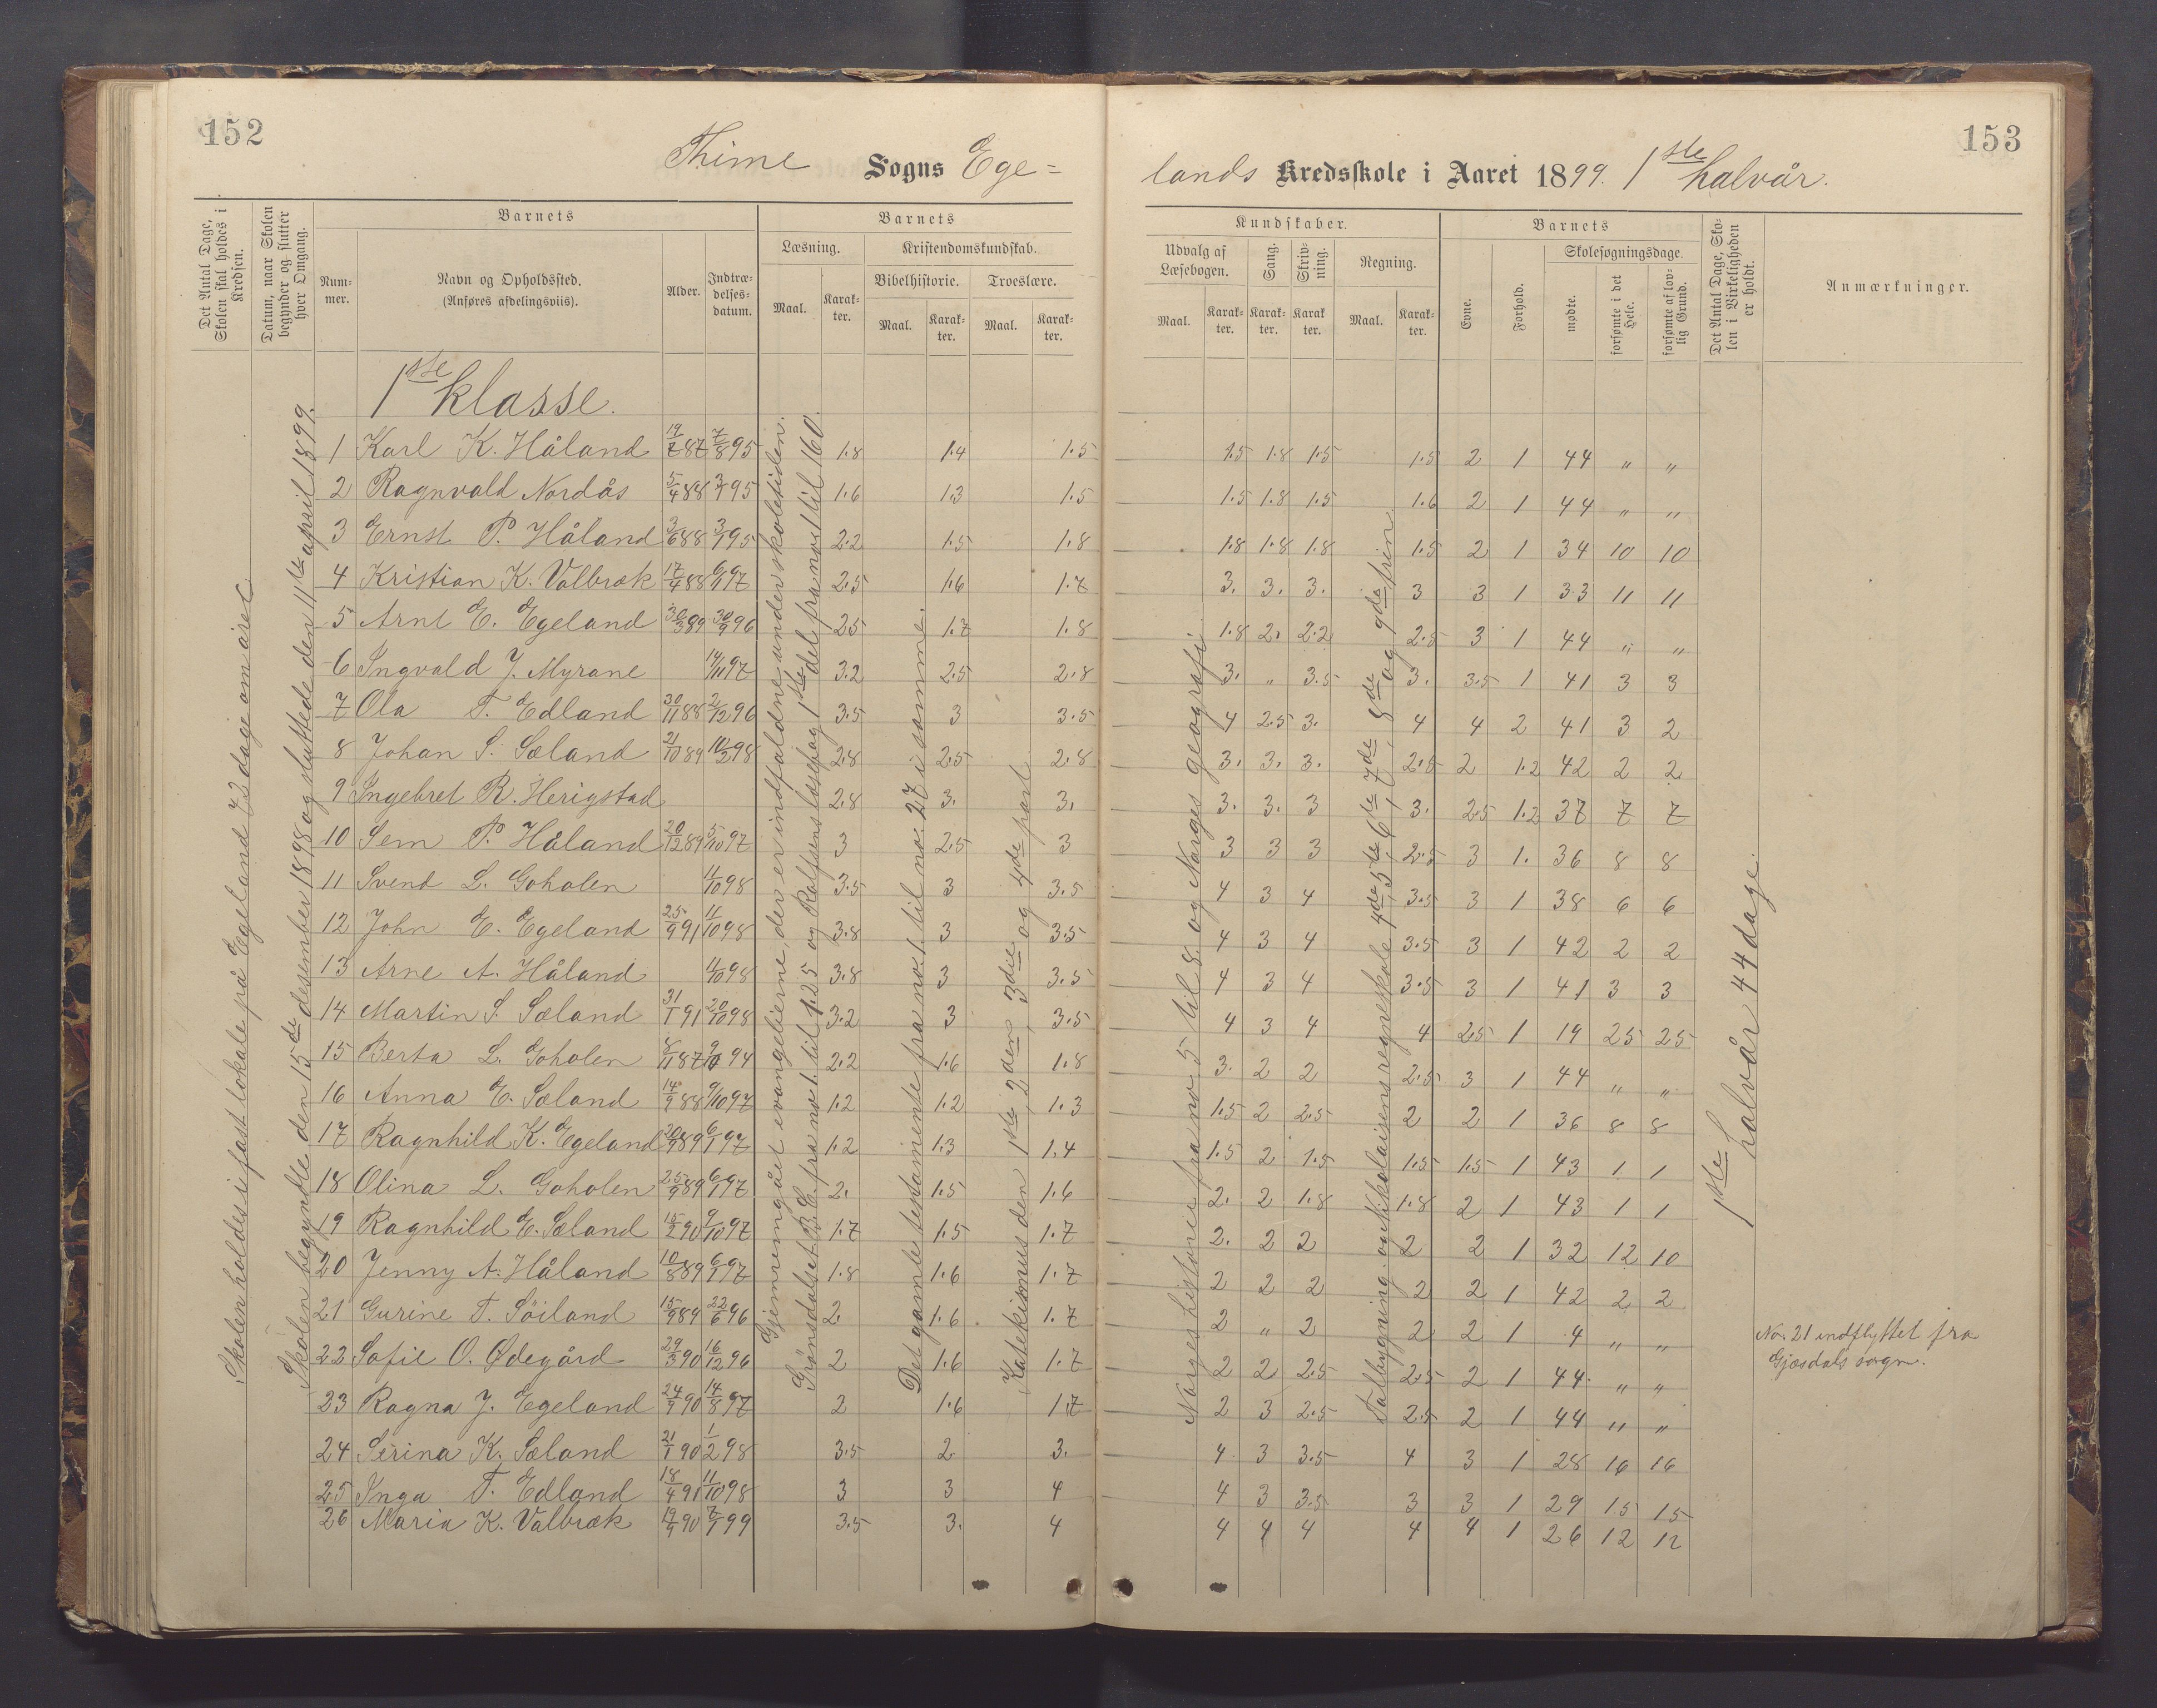 152
153
Thime Sogns Ege=
lands Kredsskole i Aaret 1899. 1ste halvår.
Det Antal Dage, Skolen skal holdes i Kredsen.
Datum, naar Skolen begynder og slutter hver Omgang.
Barnets
Num-mer.
Navn og Opholdssted.
(Anføres afdelingsviis).
Alder.
Indtræ-delses-datum.
Barnets
Læsning.
Maal.
Karak-ter.
Kristendomskundskab.
Bibelhistorie.
Maal.
Karak-ter.
Troeslære.
Maal.
Karak-ter.
Kundskaber.
Udvalg af Læsebogen.
Maal.
Karak-ter.
Sang.
Karak-ter.
Skriv-ning.
Karak ter.
Regning.
Maal.
Karak-ter.
Barnets
Evne.
Forhold.
Skolesøgningsdage.
mødte.
forsømte i det Hele.
forsømte af lov-lig Grund.
Det Antal Dage, Sko-len i Virkeligheden er holdt.
Anmærkninger.
Skolen holdes i fast lokale på Egeland 72 dage om året.
Skolen begyndte den 15de desember 1898 og sluttede den 11te april 1899.
Gjennemgået evangelierne, der er indfaldne under skoletiden.
Grønsdalset A.B.C. fra no 1. til 125 og Rolfsens læsebog 1ste del fra no. 1 til 160.
Det gamle testamente fra no. 1. til no. 27 i samme.
Katekismus den 1ste, 2den, 3die og 4de part.
Norges historie fra no 5 til 8. og Norges geografi.
Talbygning. og Nikolaisens regneskole 4de, 5te, 6te, 7de, 8de og 9de trin.
1ste halvår 44 dage.
1ste klasse.
1 Karl K. Håland 19/7 87 7/8 95 1.8 1.4 1.5 1.5 1.8 1.5 1.5 2 1 44 " "
2 Ragnvald Nordås 5/4 88 3/7 95 1.6 1.3 1.5 1.5 1.8 1.5 1.6 2 1 44 " "
3 Ernst P. Håland 3/6 88 3/1 95 2.2 1.5 1.8 1.8 1.8 1.8 1.5 2 1 34 10 10
4 Kristian K. Valbræk 17/4 88 6/1 97 2.5 1.6 1.7 3. 3. 3. 3 3 1 33 11 11
5 Arnt E. Egeland 30/3 89 30/9 96 2.5 1.7 1.8 1.8 2. 2.2 2.5 3 1 44 " "
6 Ingvald J. Myrane 14/11 97 3.2 2.5 2.8 3. " 3.5 3. 3.5 1 41 3 3
7 Ola T. Edland 30/11 88 2/12 96 3.5 3 3.5 4 2.5 3. 4 4 2 41 3 2
8 Johan S. Sæland 21/10 89 10/2 98 2.8 2.5 2.8 3. 3. 3. 2.5 2 1.2 42 2 2
9 Ingebret R. Herigstad 2.8 3. 3. 3. 3. 3 3. 2.5 1.2 37 7 7
10 Sem P. Håland 20/12 89 5/10 97 3 2.5 3 3 3 3 2.5 3 1. 36 8 8
11 Svend L. Goholen 11/10 98 3.5 3 3.5 4 3 4 3.5 3 1 38 6 6
12 John E. Egeland 25/9 91 11/10 98 3.8 3 3.5 4 3 4 3.5 3 1 42 2 2
13 Arne A. Håland 11/10 98 3.8 3 3.5 4 3 4 3.5 3 1 41 3 3
14 Martin S. Sæland 31/1 91 20/10 98 3.2 3 3.5 4 3 4 4 2.5 1 19 25 25
15 Berta L. Goholen 8/11 87 9/10 94 2.2 1.6 1.8 3. 2 2 2.5 3 1 44 " "
16 Anna E. Sæland 14/9 88 9/10 97 1.2 1.2 1.3 1.5 2 2.5 2 2 1 36 8 8
17 Ragnhild K. Egeland 20/9 89 6/1 97 1.2 1.3 1.4 1.5 2 1.5 1.5 1.5 1 43 1 1
18 Olina L. Goholen 25/9 89 6/1 97 2. 1.5 1.6 2. 2 1.8 1.8 2 1 43 1 1
19 Ragnhild E. Sæland 15/2 90 9/10 97 1.7 1.5 1.7 2. 2 2 2 2 1 32 12 10
20 Jenny A. Håland 10/8 89 6/1 97 1.8 1.6 1.7 2 2 2 2 2 1 42 2 2
21 Gurine T. Söiland 15/9 89 22/6 96 2. 1.6 1.7 2 " 2 2 2 1 4 " " No. 21 indflyttet fra
Gjesdals sogn.
22 Sofie O. Ødegård 29/3 90 16/12 96 2 1.6 1.7 2 2 2.5 2.5 2 1 44 " "
23 Ragna J. Egeland 24/9 90 14/8 97 2 1.6 1.7 2 3 2.5 2.5 2 1 44 " "
24 Serina K. Sæland 21/1 90 1/2 98 3.5 2 3. 4 3 3.5 4 3 1 28 16 16
25 Inga T. Edland 18/4 91 11/10 98 3 3 4 4 3 3.5 3 3 1 29 15 15
26 Maria K. Valbræk 19/9 90 7/1 99 3.5 3. 4 4 4 4 4 4 1 26 12 12